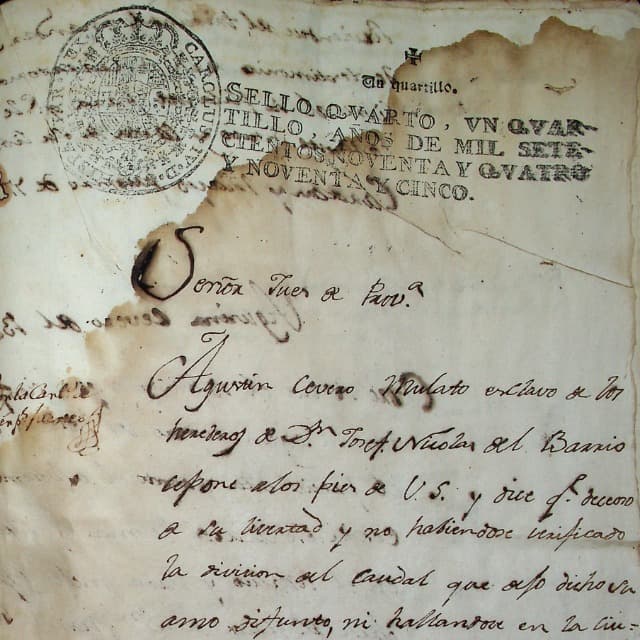 CAROLUS
Un quartillo.
SELLO QVARTO, VN QVAR-
TILLO, AÑOS DE MIL SETE-
CIENTOS, NOVENTA Y QVATRO
Y NOVENTA, CINCO.
Señor Jues de Prov.ª
Agustin Cevero Mulato esclavo de los
herederos de D.n Josef Nicolas del Barrio
se pone a los pies de V.S. y dice q.e deceoso
de su livertad y no habiendose verificado
la divicion del caudal que dejo dicho su
amo difunto, ni hallandose en la ciu-